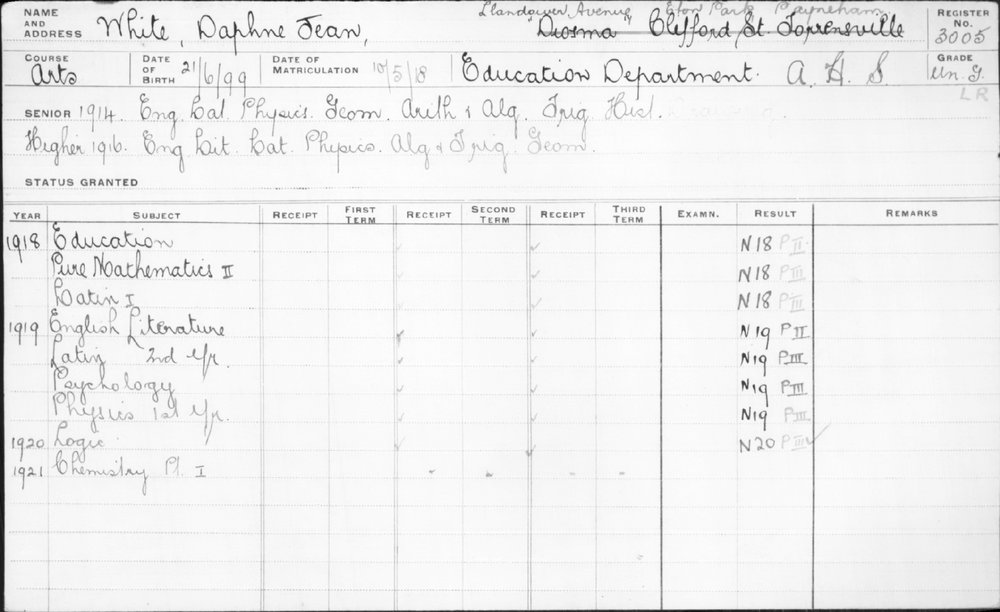 NAME AND ADDRESS White, Daphne Jean, Llandower Avenue Eton Park Payneham "Diosma" Clifford St. Torrensville REGISTER No. 3005
COURSE Arts DATE OF BIRTH 21/6/99 DATE OF MATRICULATION 10/5/18 Education Department. A. H. S GRADE Un. G.
LR
SENIOR 1914. Eng. Lat. Physics. Geom. Arith & Alg. Trig. Hist.
Higher 1916. Eng Lit. Lat. Physics. Alg & Trig. Geom.
STATUS GRANTED
YEAR SUBJECT RECEIPT FIRST TERM RECEIPT SECOND TERM RECEIPT THIRD TERM EXAMN. RESULT REMARKS
1918 Education N18 P II
Pure Mathematics II N18 P III
Latin I N18 P III
1919 English Literature N19 P II
Latin 2nd Yr. N19 P III
Psychology N19 P III
Physics 1st Yr. N19 P III
1920 Logic N20 P III
1921 Chemistry Pt. I